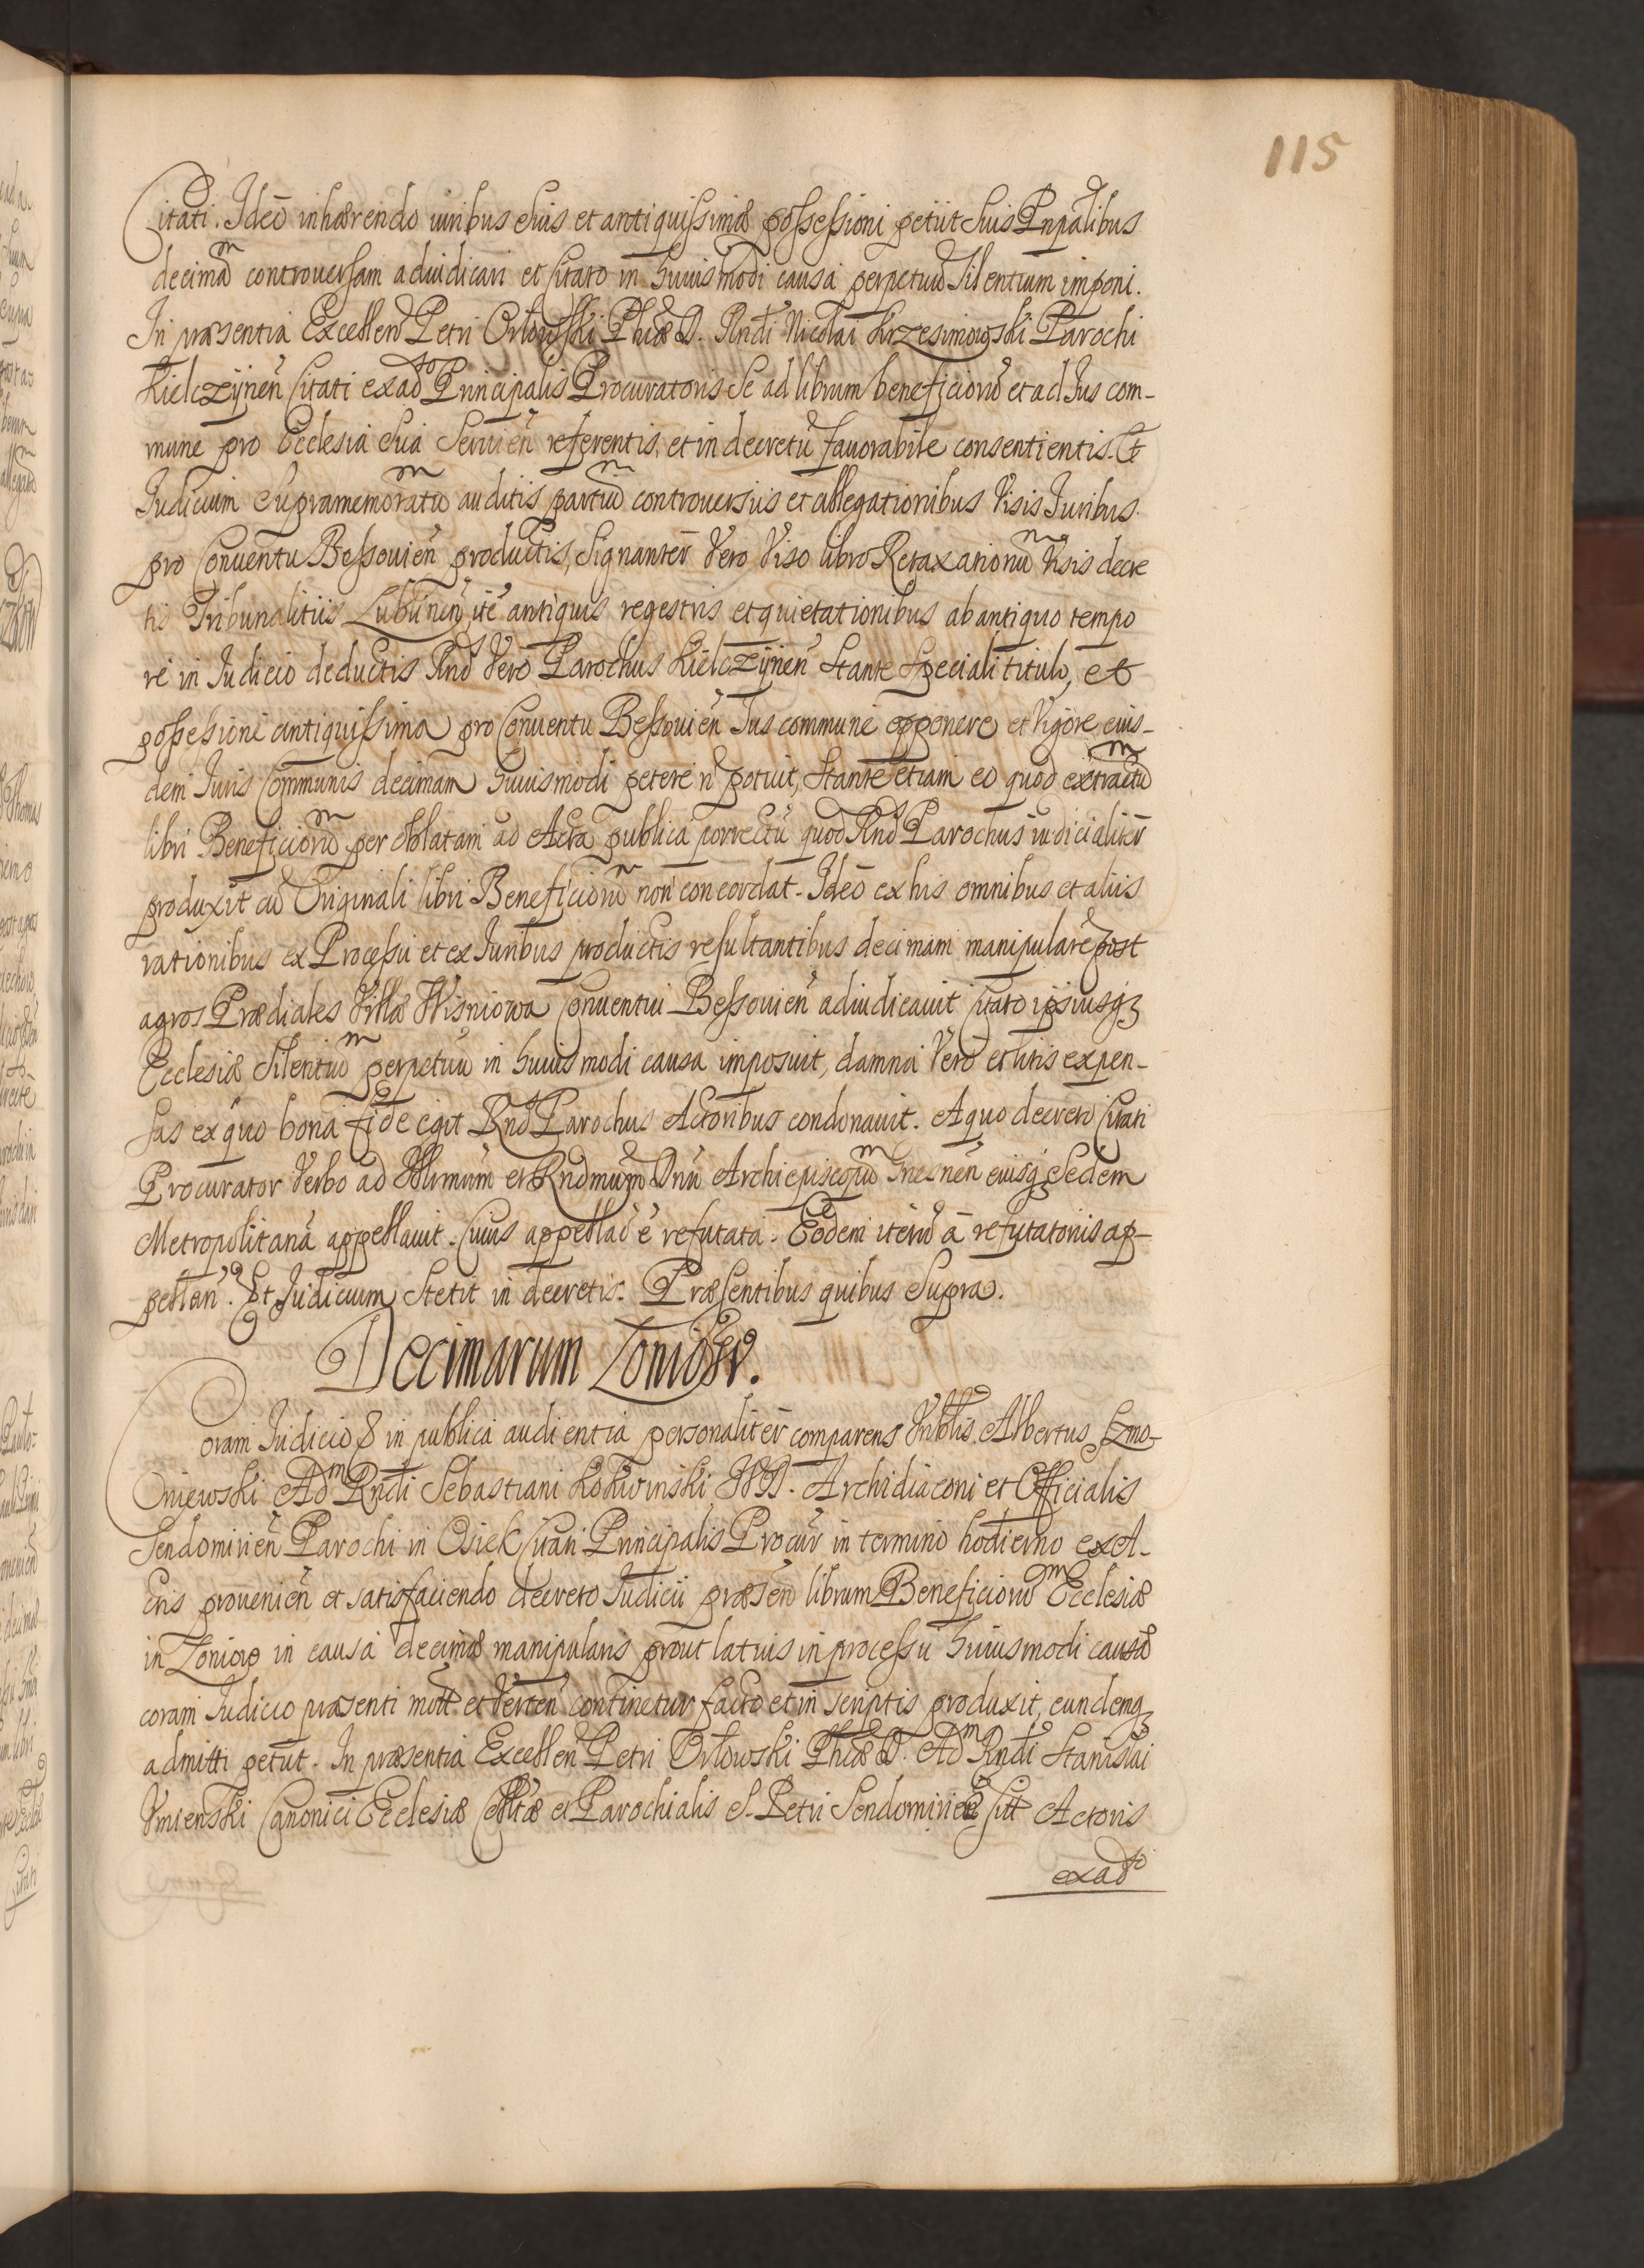 115
Citati. Ideo inhærendo iuribus suis et antiquissimæ possessioni petiit suis Pnpalibus
decimam controuersam adiudicari et Citato in huiusmodi causa perpetuu Silentium imponi.
In præsentia Excellen Petri Orłowski Phiæ D. Rndi Nicolai Krzesimowski Parochi
Kielczynen Citati ex ad to Principalis Procuratoris Se ad librum beneficioru et ad Ius com-
mune pro Ecclesia sua Seruien referentis, et in decretu fauorabile consentientis. Et
Iudicium Supramemoratum auditis partium controuersiis et allegationibus Visis Iuribus
pro Conuentu Bessouien productis, Signanter Vero Viso libro Retaxationum Visis decre
tis Tribunalitiis Lublinen, ite antiquis regestris et quietationibus ab antiquo tempo
re in Iudicio deductis Rnd Vero Parochus Kielczynen Stante Speciali titulo, et
possessione antiquissima pro Conuentu Bessouien Ius commune opponere et Vigore eius-
dem Iuris Communis decimam huiusmodi petere n potuit, Stante etiam eo quod extractum
libri Beneficiorum per oblatam ad Acta publica porrectu quod Rnd Parochus iudicialiter
produxit cu Originali libri Beneficiorum non concordat. Ideo ex his omnibus et aliis
rationibus ex Processu et ex Iuribus productis resultantibus decimam manipulare post
agros Prædiales Villæ Wisniowa Conuentui Bessouien adiudicauit Citato ipsiusq
Ecclesiæ Silentium perpetuu in huiusmodi causa imposuit, damna Vero et litis expen-
sas ex quo bona fide egit Rnd Parochus Actoribus condonauit. A quo decreto Citati
Procurator Verbo ad Illrmum et Rndmum Dnu Archiepiscopum Gnesnen eiusq Sedem
Metropolitana appellauit. Cuius appellao e refutata. Eodem iteru a refutatoriis ap-
pellan. Et Iudicium Stetit in decretis. Præsentibus quibus Supra.
Decimarum Zoniow.
Coram Iudicio & in publica audientia personaliter comparens Nobilis Albertus Czmo-
Oniewski Adm Rndi Sebastiani Kokwinski IVD. Archidiaconi et Officialis
Sendomirien Parochi in Osiek Citati Principalis Procur in termino hodierno ex A-
ctis prouenien et satisfaciendo decreto Iudicii præsen librum Beneficiorum Ecclesiæ
in Zoniow in causa decimæ manipularis prout latius in processu huiusmodi causæ
coram Iudicio præsenti mott et Verten continetur facto et in scriptis produxit, eundemq
admitti petiit. In præsentia Excellen Petri Orłowski Phiæ D. Adm Rndi Stanislai
Vmienski Canonici Ecclesiæ Colltæ et Parochialis S. Petri Sendomirien Citt Actoris
ex ad to